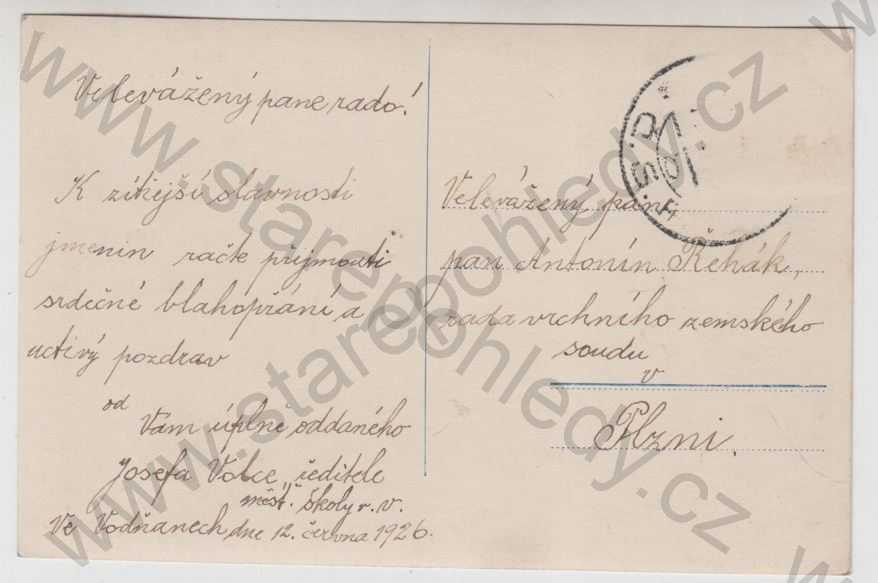 Velevážený pane rado!
K zítřejší slavnosti
jmenin račte přijmouti
srdečné blahopřání a
uctivý pozdrav
od
Vám úplně oddaného
Josefa ředitele
měšť. školy v. v.
Ve Vodňanech dne 12. června 1926.
Velevážený pan
pan Antonín Řehák,
rada vrchního zemského
soudu
v
Plzni.
www.starepohledy.cz
www.starepohledy.cz